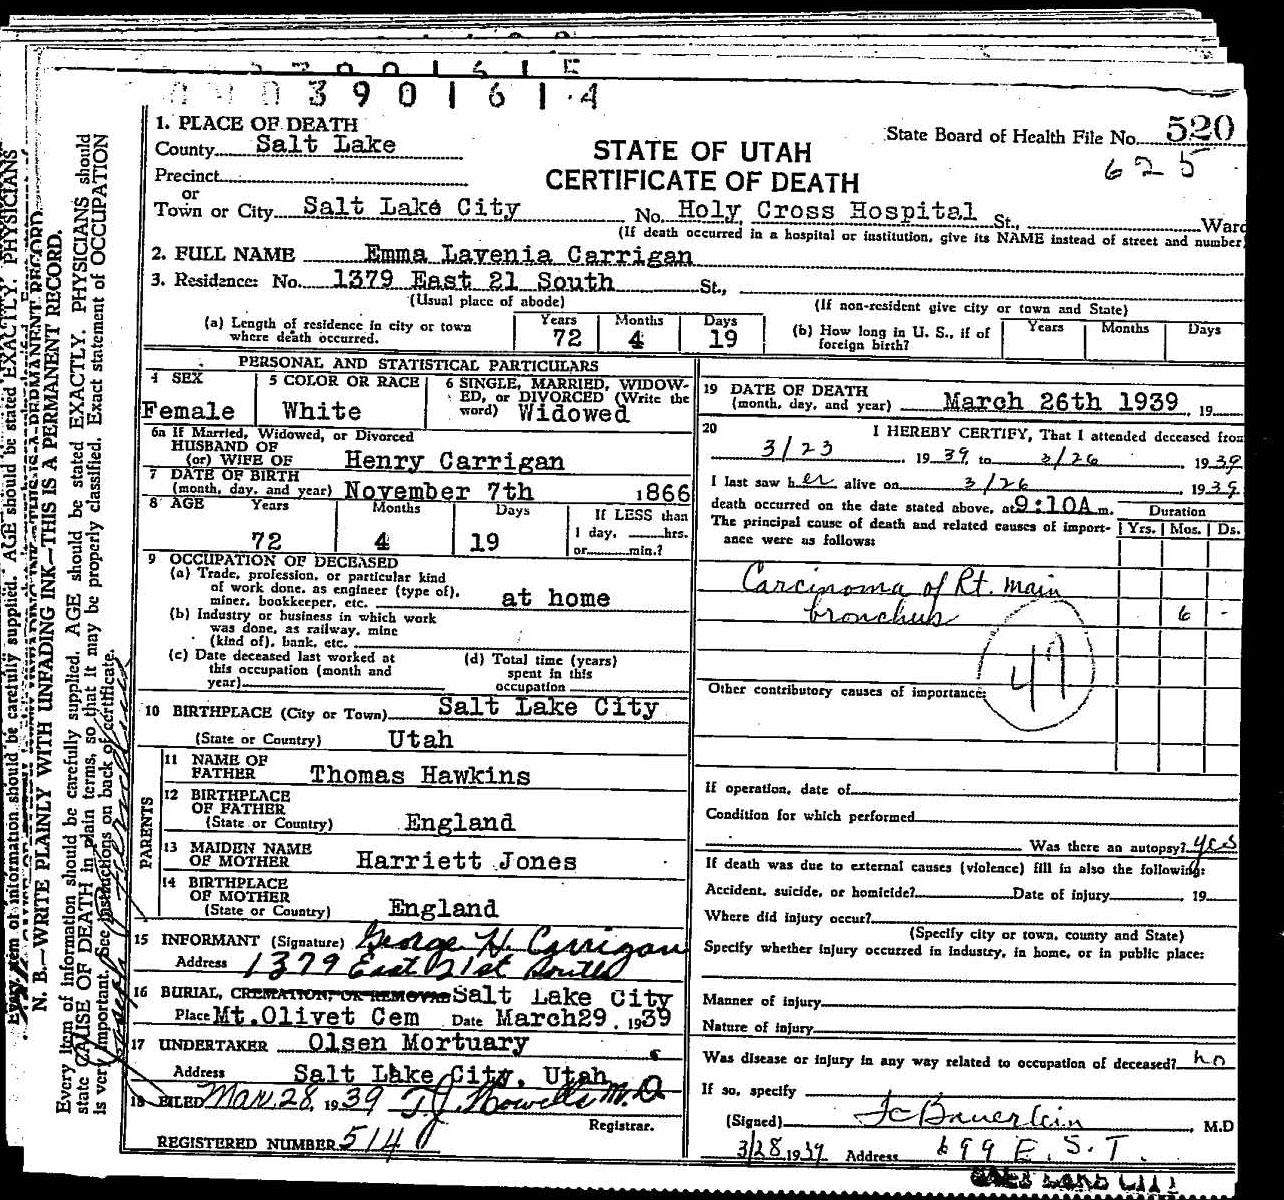 3901614
1. PLACE OF DEATH
County Salt Lake
State Board of Health File No. 520
625
STATE OF UTAH
CERTIFICATE OF DEATH
Precinct
or
Town or City Salt Lake City No. Holy Cross Hospital St., Ward
(If death occurred in a hospital or institution, give its NAME instead of street and number)
2. FULL NAME Emma Lavenia Carrigan
3. Residence: No. 1379 East 21 South St.,
(Usual place of abode) (If non-resident give city or town and State)
(a) Length of residence in city or town where death occurred. Years 72 Months 4 Days 19
(b) How long in U. S., if of foreign birth? Years Months Days
PERSONAL AND STATISTICAL PARTICULARS
4 SEX Female
5 COLOR OR RACE White
6 SINGLE, MARRIED, WIDOW-
ED, or DIVORCED (Write the
word) Widowed
6a If Married, Widowed, or Divorced
HUSBAND OF
(or) WIFE OF Henry Carrigan
7 DATE OF BIRTH
(month, day, and year) November 7th 1866
8 AGE Years 72 Months 4 Days 19
If LESS than
1 day, hrs.
or min.?
9 OCCUPATION OF DECEASED
(a) Trade, profession, or particular kind
of work done, as engineer (type of),
miner, bookkeeper, etc. at home
(b) Industry or business in which work
was done, as railway, mine
(kind of), bank, etc.
(c) Date deceased last worked at
this occupation (month and
year)
(d) Total time (years)
spent in this
occupation
10 BIRTHPLACE (City or Town) Salt Lake City
(State or Country) Utah
PARENTS
11 NAME OF
FATHER Thomas Hawkins
12 BIRTHPLACE
OF FATHER
(State or Country) England
13 MAIDEN NAME
OF MOTHER Harriett Jones
14 BIRTHPLACE
OF MOTHER
(State or Country) England
15 INFORMANT (Signature) George H. Carrigan
Address 1379 East 21st South
16 BURIAL, CREMATION, OR REMOVAL Salt Lake City
Place Mt.Olivet Cem Date March29, 1939
17 UNDERTAKER Olsen Mortuary
Address Salt Lake City, Utah
18 FILED Mar. 28, 1939 T.J. Howells M.D.
Registrar.
REGISTERED NUMBER 514
19 DATE OF DEATH
(month, day, and year) March 26th 1939, 19
20 I HEREBY CERTIFY, That I attended deceased from
3/23 1939 to 3/26 1939
I last saw her alive on 3/26 1939
death occurred on the date stated above, at 9:10A m.
Duration
The principal cause of death and related causes of import-
ance were as follows:
Yrs. Mos. Ds.
Carcinoma of Rt. main
bronchus 6 -
47
Other contributory causes of importance:
If operation, date of
Condition for which performed
Was there an autopsy? yes
If death was due to external causes (violence) fill in also the following:
Accident, suicide, or homicide? Date of injury 19
Where did injury occur?
(Specify city or town, county and State)
Specify whether injury occurred in industry, in home, or in public place:
Manner of injury
Nature of injury
Was disease or injury in any way related to occupation of deceased? no
If so, specify
(Signed) F C Bauerlein, M.D
3/28 1939 Address 699 E. S. T.
SALT LAKE CITY
N. B.—WRITE PLAINLY WITH UNFADING INK—THIS IS A PERMANENT RECORD.
Every item of information should be carefully supplied. AGE should be stated EXACTLY. PHYSICIANS should
state CAUSE OF DEATH in plain terms, so that it may be properly classified. Exact statement of OCCUPATION
is very important. See instructions on back of certificate.